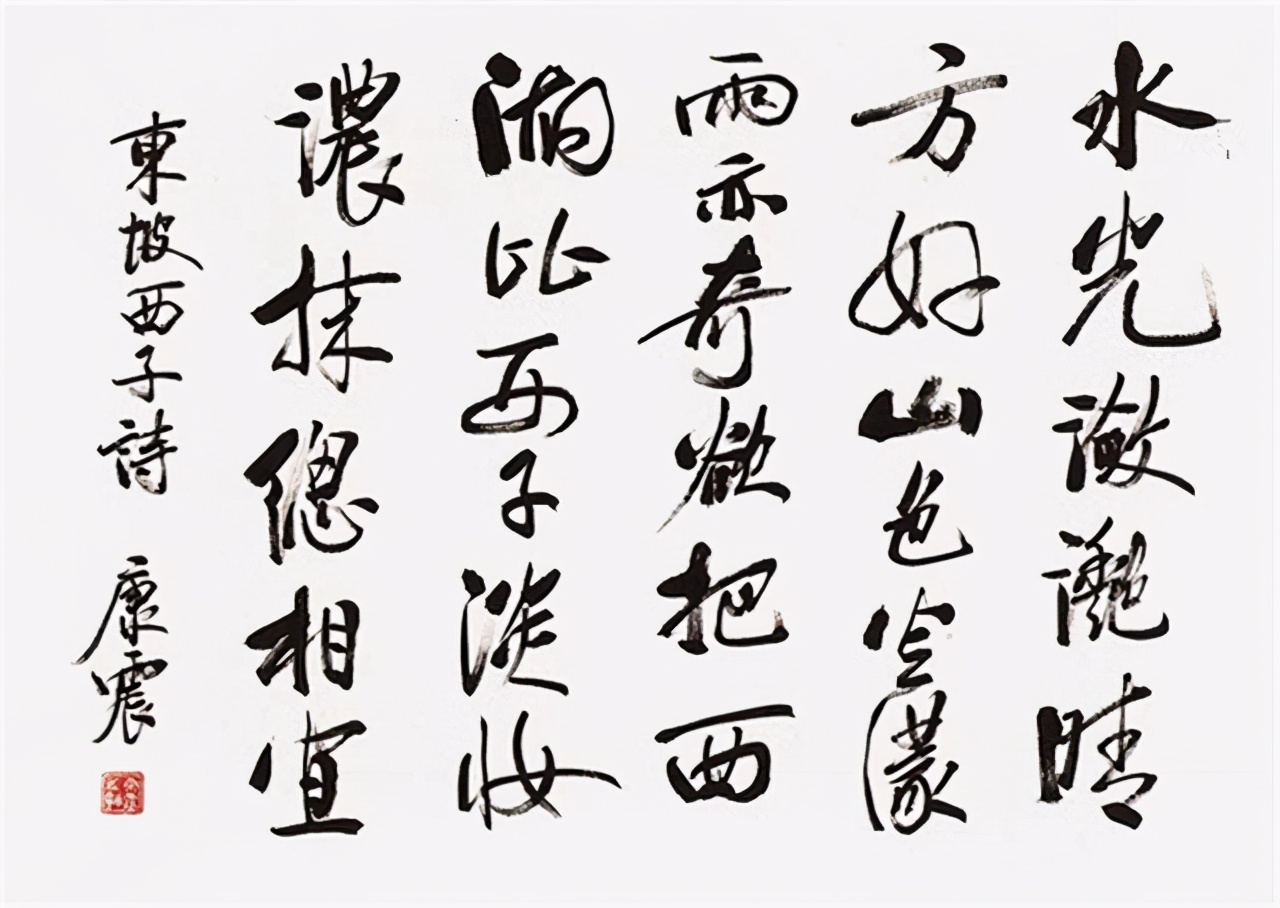 水光潋滟晴
方好山色空濛
雨亦奇欲把西
湖比西子淡妝
濃抹總相宜
東坡西子詩 康震